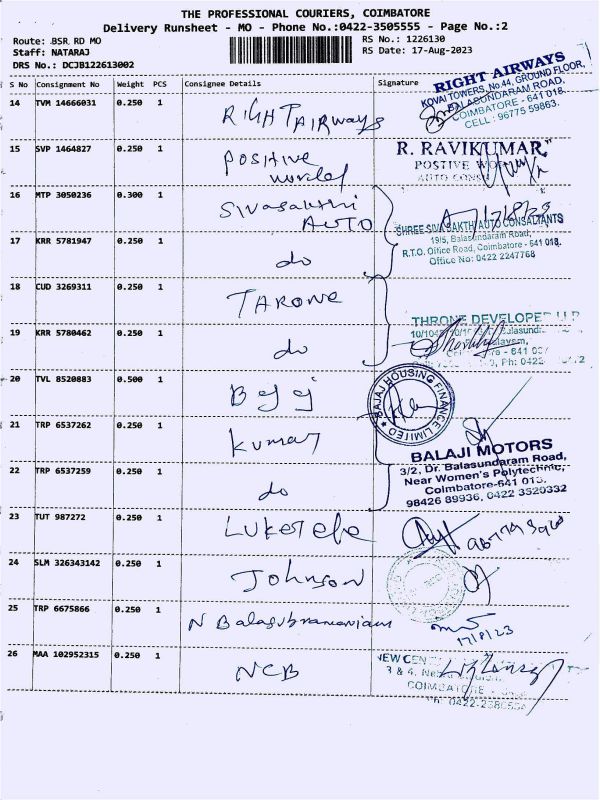 THE PROFESSIONAL COURIERS, COIMBATORE
Delivery Runsheet - MO - Phone No.:0422-3505555 - Page No.:2
Route: .BSR. RD MO
RS No.: 1226130
Staff: NATARAJ
RS Date: 17-Aug-2023
DRS No.: DCJB122613002
S No Consignment No Weight PCS Consignee Details Signature
RIGHT AIRWAYS
KOVAI TOWERS, No.44, GROUND FLOOR,
BALASUNDARAM ROAD,
COIMBATORE - 641 018.
CELL : 96775 59863.
14 TVM 14666031 0.250 1 RIGHT AIRWAYS
15 SVP 1464827 0.250 1 Positive world
R. RAVIKUMAR,
POSTIVE
AUTO
16 MTP 3050236 0.300 1 Sivasakthi AUTO
17/8/23
SHREE SIVA SAKTHI AUTO CONSULTANTS
19/5, Balasundaram Road,
R.T.O. Office Road, Coimbatore - 641 018.
Office No: 0422 2247768
17 KRR 5781947 0.250 1 do
18 CUD 3269311 0.250 1 TARONE
THRONE DEVELOPER LLP
19 KRR 5780462 0.250 1 do
20 TVL 8520883 0.500 1 Bajaj
BAJAJ HOUSING FINANCE LIMITED
21 TRP 6537262 0.250 1 Kumar
BALAJI MOTORS
3/2, Dr. Balasundaram Road,
Near Women's Polytechnic,
Coimbatore-641 013.
98426 89936, 0422 3520332
22 TRP 6537259 0.250 1 do
23 TUT 987272 0.250 1
24 SLM 326343142 0.250 1 Johnson
25 TRP 6675866 0.250 1 N Balasubramaniam
17/8/23
26 MAA 102952315 0.250 1 NCB
NEW
3 & 4,
COIMBATORE